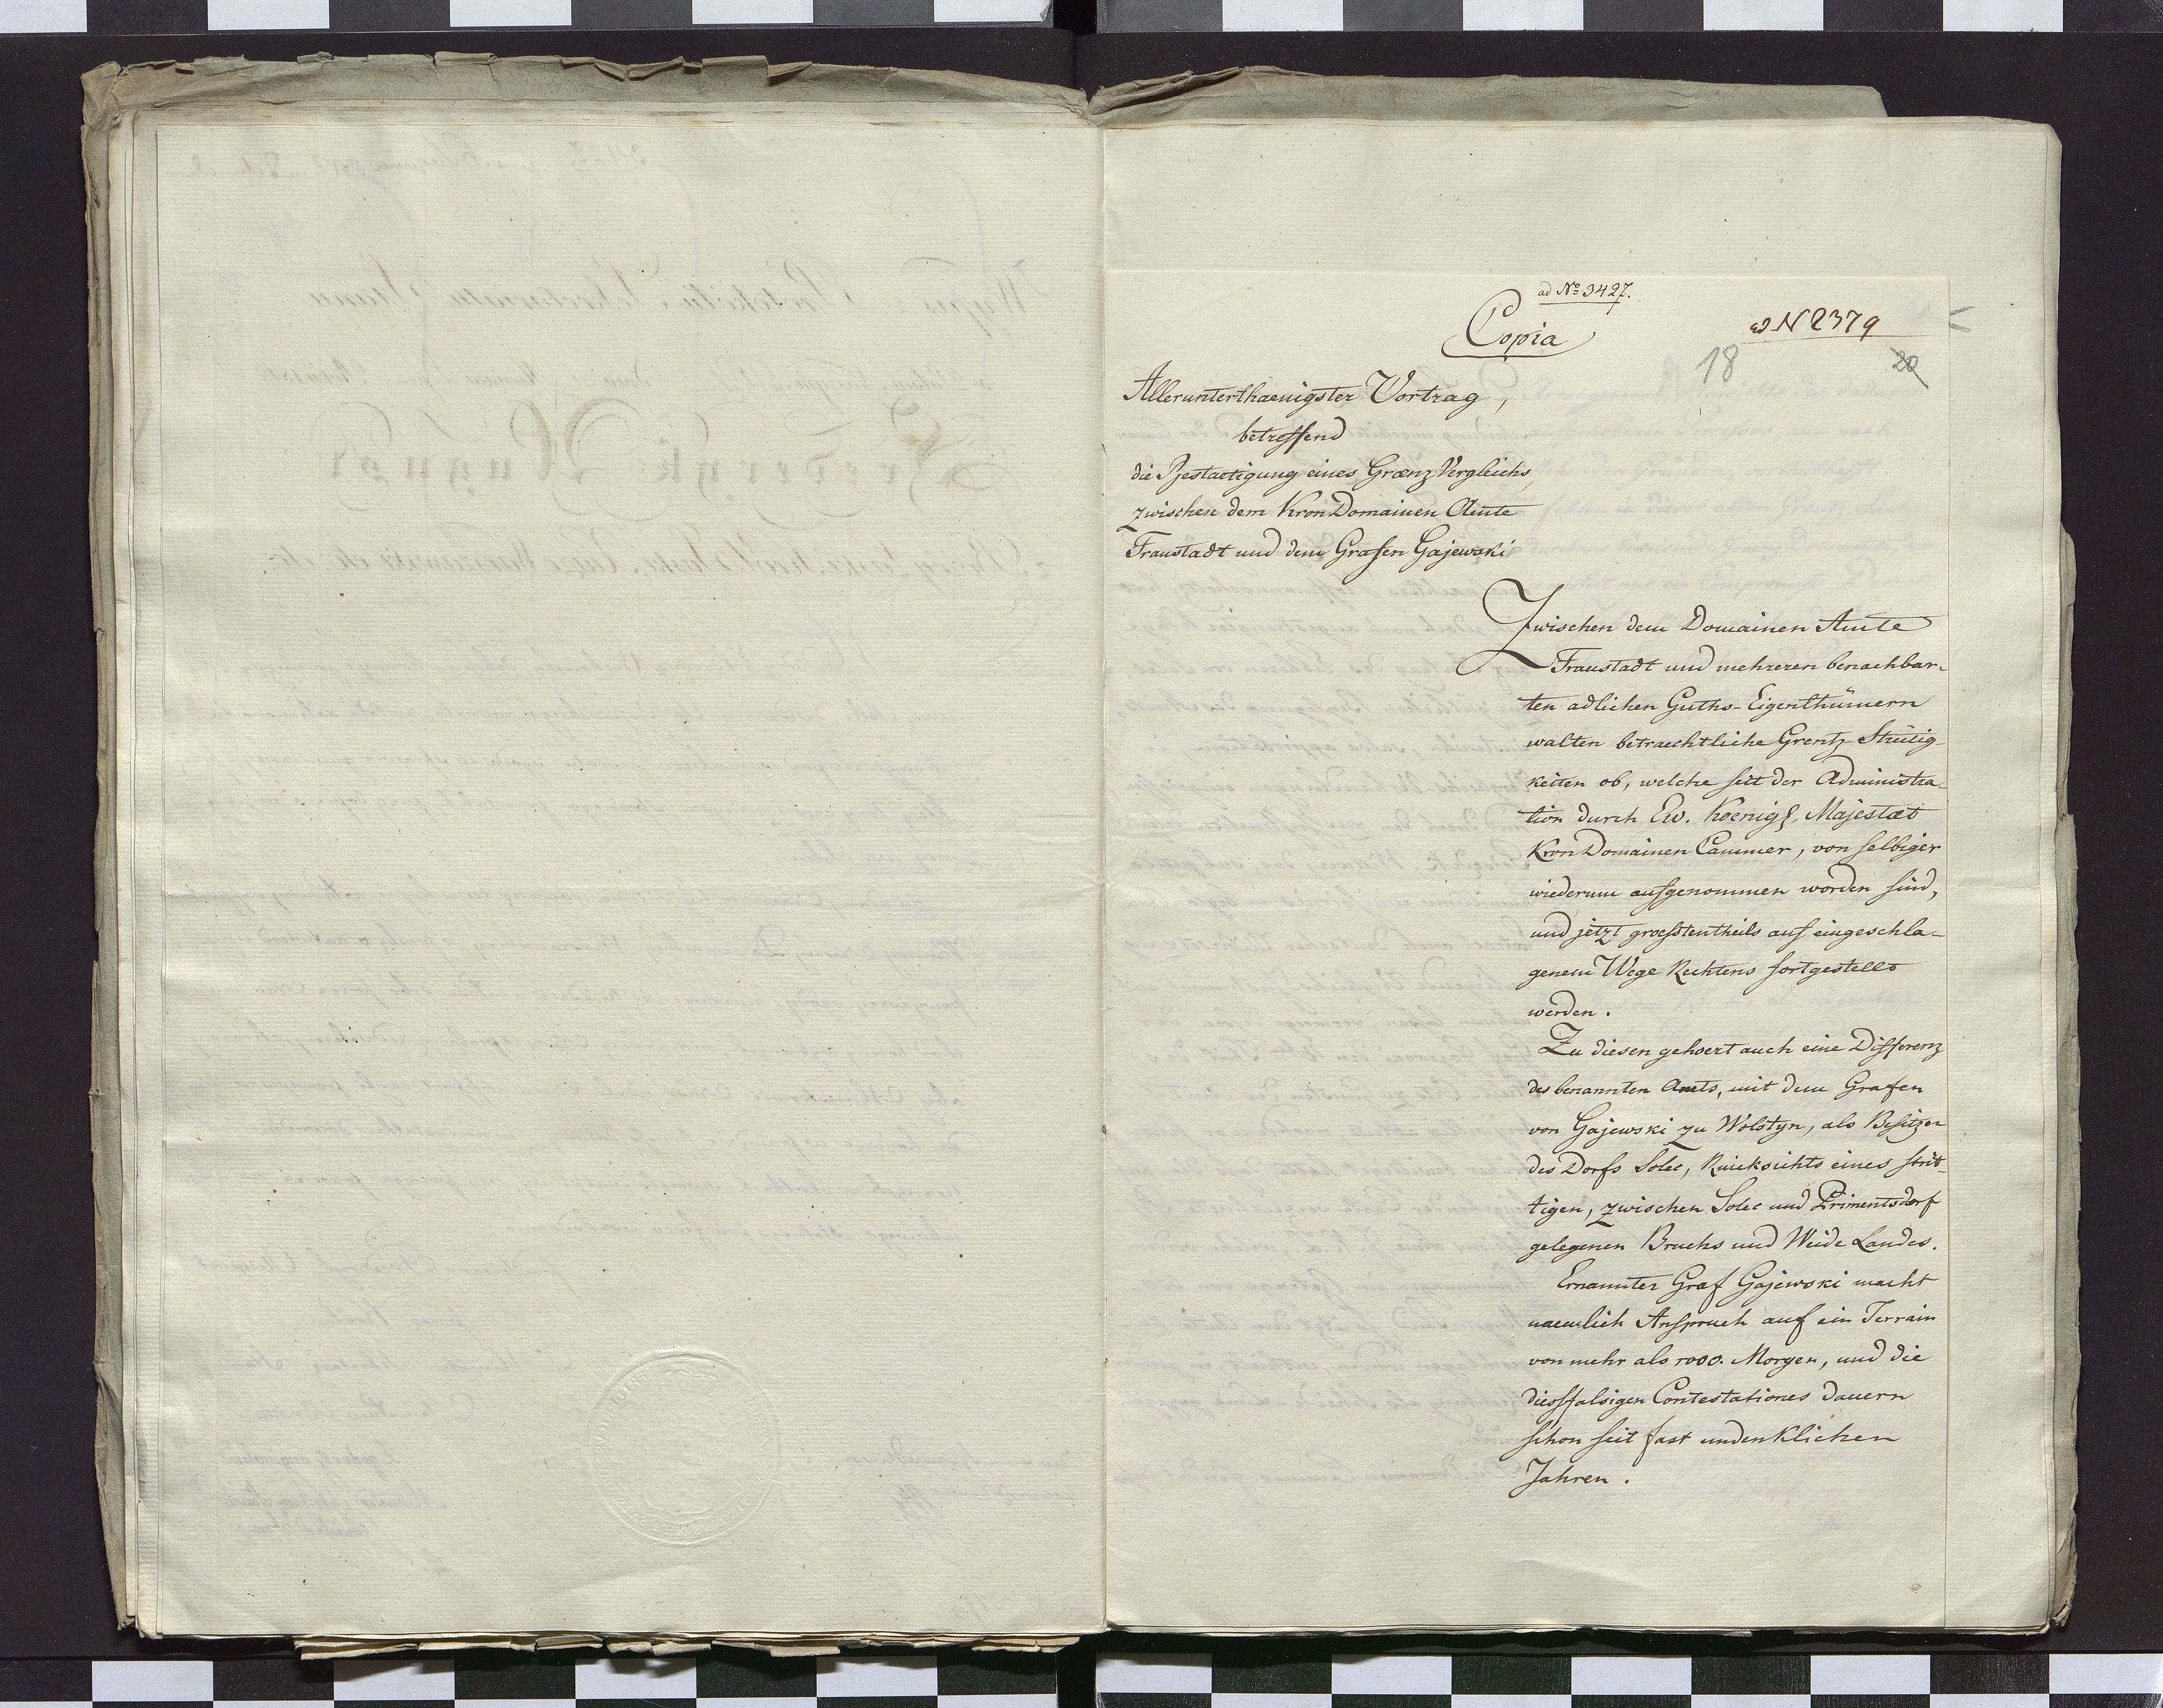 ad No 3427.
Copia
ad N 2379
18
20
Allerunterthaenigster Vortrag,
betreffend
die Bestaetigung eines Graenz Vergleichs,
zwischen dem Kron Domainen Amte
Fraustadt und dem Grafen Gajewski
Zwischen dem Domainen Amte
Fraustadt und mehreren benachbar-
ten adlichen Guths-Eigenthümern
walten betraechtliche Grentz Streitig-
keiten ob, welche seit der Administra-
tion durch Ew. Koenigl. Majestaet
Kron Domainen Cammer, von selbiger
wiederum aufgenommen worden sind,
und jetzt groesstentheils auf eingeschla-
genem Wege Rechtens fortgestellt
werden.
Zu diesen gehoert auch eine Differenz
des benannten Amts, mit dem Grafen
von Gajewski zu Wolstyn, als Besitzer
des Dorfs Solec, Rücksichts eines strit-
tigen, zwischen Solec und Primentsdorf
gelegenen Bruchs und Weide Landes.
Ernannter Graf Gajewski macht
naemlich Anspruch auf ein Terrain
von mehr als 1000. Morgen, und die
diessfalsigen Contestationes dauern
schon seit fast undenklichen
Jahren.